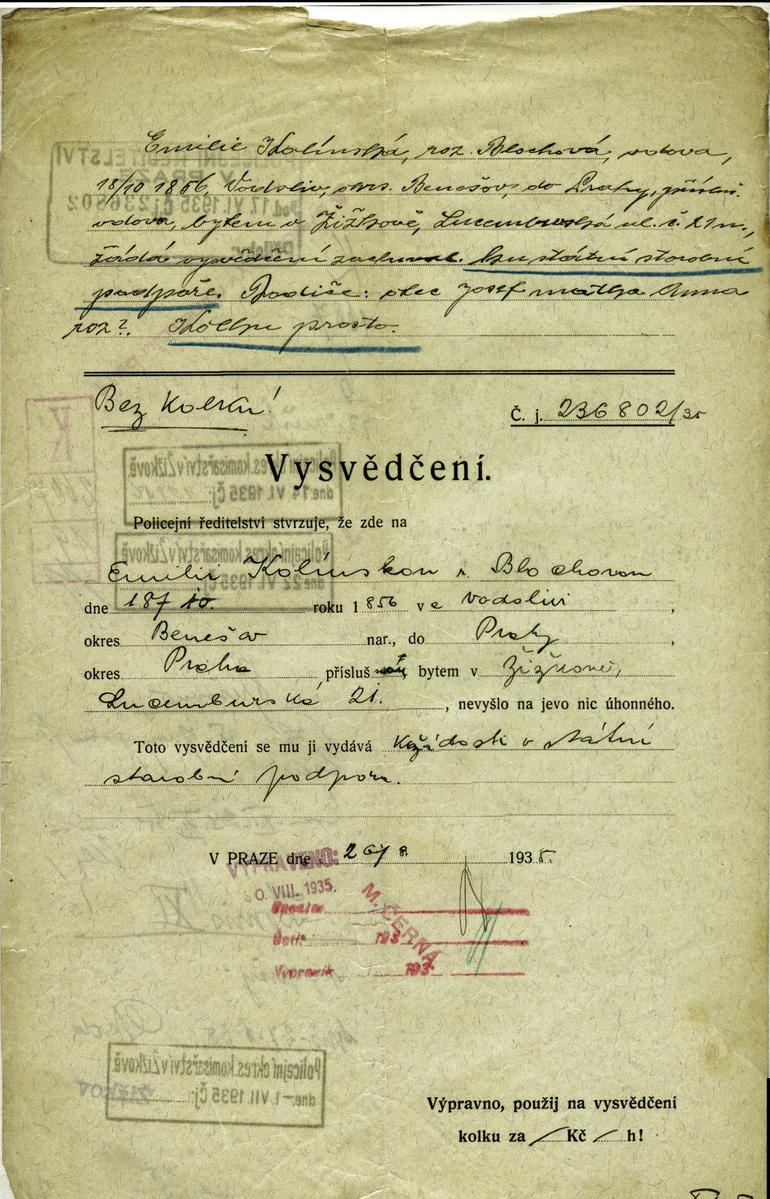 Emilie Kolínská, roz. Blochová, vdova,
18/10 1856, Vodsliv, okres. Benešov, do Prahy, přísluš.
vdova, bytem v Žižkově, Lucemburská ul. č. 21 n.,
žádá vysvědčení zachoval. ku státní starobní
podpoře. Rodiče: otec Josef matka Anna
roz?. Kolku prosto.
Bez kolku!
Č. j. 236802/35
Vysvědčení.
Policejní ředitelství stvrzuje, že zde na
Emilii Kolínskou r. Blochovou
dne 18/10. roku 1856 ve Vodslivi,
okres Benešov nar., do Prahy,
okres Praha přísluš nou bytem v Žižkově,
Lucemburská 21., nevyšlo na jevo nic úhonného.
Toto vysvědčení se mu jí vydává k žádosti o státní
starobní podporu.
V PRAZE dne 1935.
VYPRAVENO:
VIII. 1935.
M. ČERNÁ
Opsala
193
Vypravil 193
Policejní ředitelství
V PRAZE
Pod. 17 VI. 1935 Čj 236802
Policejní okres. komisařství v Žižkově.
dne 14 VI. 1935 Čj:
Policejní okres. komisařství v Žižkově.
dne 22 VI. 1935 Čj:
Policejní okres. komisařství v Žižkově.
dne -1. VII 1935 Čj:
Výpravno, použij na vysvědčení
kolku za Kč h!